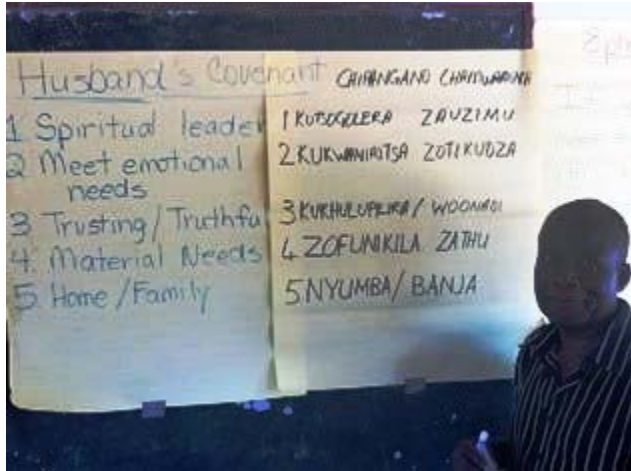 Husband's Covenant
1 Spiritual leader
2 Meet emotional
needs
3 Trusting/Truthful
4. Material Needs
5 Home/Family
CHIPANGANO
1 KUTSOGOLERA ZAUZIMU
2 KUKWANIRITSA
3 KUKHULUPIRIRA/WOONADI
4 ZOFUNIKILA ZATHU
5 NYUMBA/BANJA
Eph